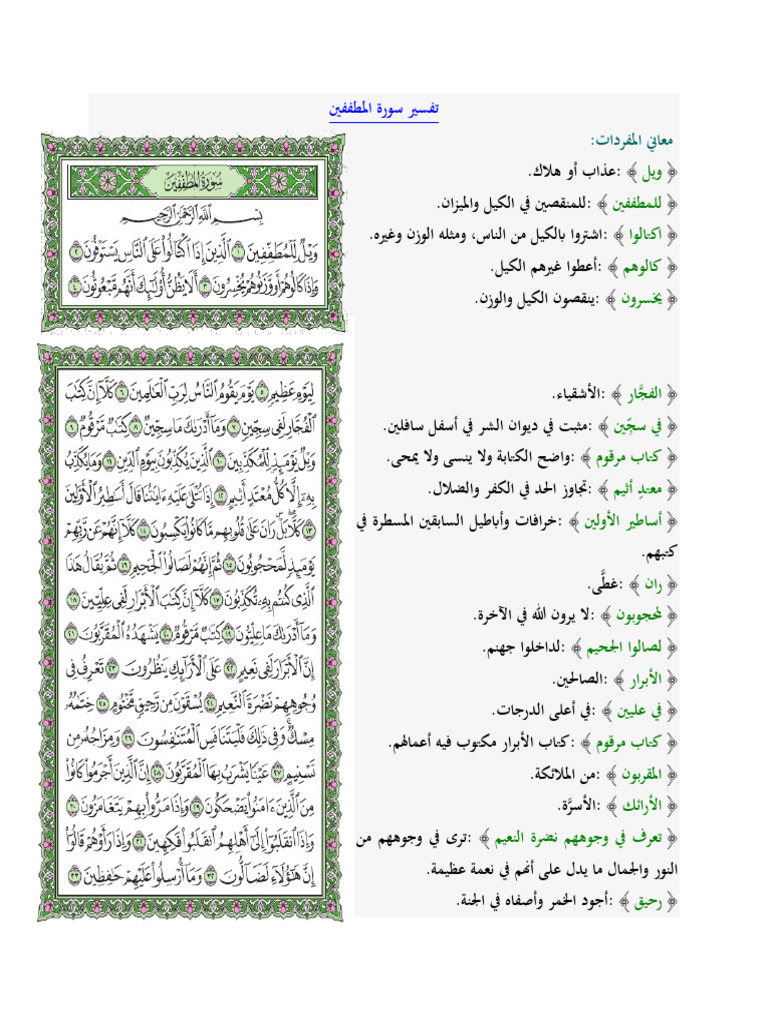 تفسير سورة المطففين
معاني المفردات:
﴿ ويل ﴾ :عذاب أو هلاك.
﴿ للمطففين ﴾ :للمنقصين في الكيل والميزان.
﴿ اكتالوا ﴾ :اشتروا بالكيل من الناس، ومثله الوزن وغيره.
﴿ كالوهم ﴾ :أعطوا غيرهم الكيل.
﴿ يخسرون ﴾ :ينقصون الكيل والوزن.
﴿ الفجَّار ﴾ :الأشقياء.
﴿ في سجّين ﴾ :مثبت في ديوان الشر في أسفل سافلين.
﴿ كتاب مرقوم ﴾ :واضح الكتابة ولا ينسى ولا يمحى.
﴿ معتدٍ أثيم ﴾ :تجاوز الحد في الكفر والضلال.
﴿ أساطير الأولين ﴾ :خرافات وأباطيل السابقين المسطرة في
كتبهم.
﴿ ران ﴾ :غطَّى.
﴿ لمحجوبون ﴾ :لا يرون الله في الآخرة.
﴿ لصالوا الجحيم ﴾ :لداخلوا جهنم.
﴿ الأبرار ﴾ :الصالحين.
﴿ في عليين ﴾ :في أعلى الدرجات.
﴿ كتاب مرقوم ﴾ :كتاب الأبرار مكتوب فيه أعمالهم.
﴿ المقربون ﴾ :من الملائكة.
﴿ الأرائك ﴾ :الأسرَّة.
﴿ تعرف في وجوههم نضرة النعيم ﴾ :ترى في وجوههم من
النور والجمال ما يدل على أنهم في نعمة عظيمة.
﴿ رحيق ﴾ :أجود الخمر وأصفاه في الجنة.
سُورَةُ المُطَفِّفِينَ
بِسْمِ اللَّهِ الرَّحْمَٰنِ الرَّحِيمِ
وَيْلٌ لِّلْمُطَفِّفِينَ ١ الَّذِينَ إِذَا اكْتَالُوا عَلَى النَّاسِ يَسْتَوْفُونَ ٢
وَإِذَا كَالُوهُمْ أَو وَّزَنُوهُمْ يُخْسِرُونَ ٣ أَلَا يَظُنُّ أُولَٰئِكَ أَنَّهُم مَّبْعُوثُونَ ٤
لِيَوْمٍ عَظِيمٍ ٥ يَوْمَ يَقُومُ النَّاسُ لِرَبِّ الْعَالَمِينَ ٦ كَلَّا إِنَّ كِتَٰبَ
الْفُجَّارِ لَفِي سِجِّينٍ ٧ وَمَا أَدْرَىٰكَ مَا سِجِّينٌ ٨ كِتَٰبٌ مَّرْقُومٌ ٩
وَيْلٌ يَوْمَئِذٍ لِّلْمُكَذِّبِينَ ١٠ الَّذِينَ يُكَذِّبُونَ بِيَوْمِ الدِّينِ ١١ وَمَا يُكَذِّبُ
بِهِ إِلَّا كُلُّ مُعْتَدٍ أَثِيمٍ ١٢ إِذَا تُتْلَىٰ عَلَيْهِ ءَايَٰتُنَا قَالَ أَسَٰطِيرُ الْأَوَّلِينَ
١٣ كَلَّا بَلْ رَانَ عَلَىٰ قُلُوبِهِم مَّا كَانُوا يَكْسِبُونَ ١٤ كَلَّا إِنَّهُمْ عَن رَّبِّهِمْ
يَوْمَئِذٍ لَّمَحْجُوبُونَ ١٥ ثُمَّ إِنَّهُمْ لَصَالُوا الْجَحِيمِ ١٦ ثُمَّ يُقَالُ هَٰذَا
الَّذِي كُنتُم بِهِ تُكَذِّبُونَ ١٧ كَلَّا إِنَّ كِتَٰبَ الْأَبْرَارِ لَفِي عِلِّيِّينَ ١٨
وَمَا أَدْرَىٰكَ مَا عِلِّيُّونَ ١٩ كِتَٰبٌ مَّرْقُومٌ ٢٠ يَشْهَدُهُ الْمُقَرَّبُونَ ٢١
إِنَّ الْأَبْرَارَ لَفِي نَعِيمٍ ٢٢ عَلَى الْأَرَائِكِ يَنظُرُونَ ٢٣ تَعْرِفُ فِي
وُجُوهِهِمْ نَضْرَةَ النَّعِيمِ ٢٤ يُسْقَوْنَ مِن رَّحِيقٍ مَّخْتُومٍ ٢٥ خِتَٰمُهُ
مِسْكٌ وَفِي ذَٰلِكَ فَلْيَتَنَافَسِ الْمُتَنَٰفِسُونَ ٢٦ وَمِزَاجُهُ مِن
تَسْنِيمٍ ٢٧ عَيْنًا يَشْرَبُ بِهَا الْمُقَرَّبُونَ ٢٨ إِنَّ الَّذِينَ أَجْرَمُوا كَانُوا
مِنَ الَّذِينَ ءَامَنُوا يَضْحَكُونَ ٢٩ وَإِذَا مَرُّوا بِهِمْ يَتَغَامَزُونَ ٣٠
وَإِذَا انقَلَبُوا إِلَىٰ أَهْلِهِمُ انقَلَبُوا فَكِهِينَ ٣١ وَإِذَا رَأَوْهُمْ قَالُوا
إِنَّ هَٰؤُلَاءِ لَضَالُّونَ ٣٢ وَمَا أُرْسِلُوا عَلَيْهِمْ حَٰفِظِينَ ٣٣